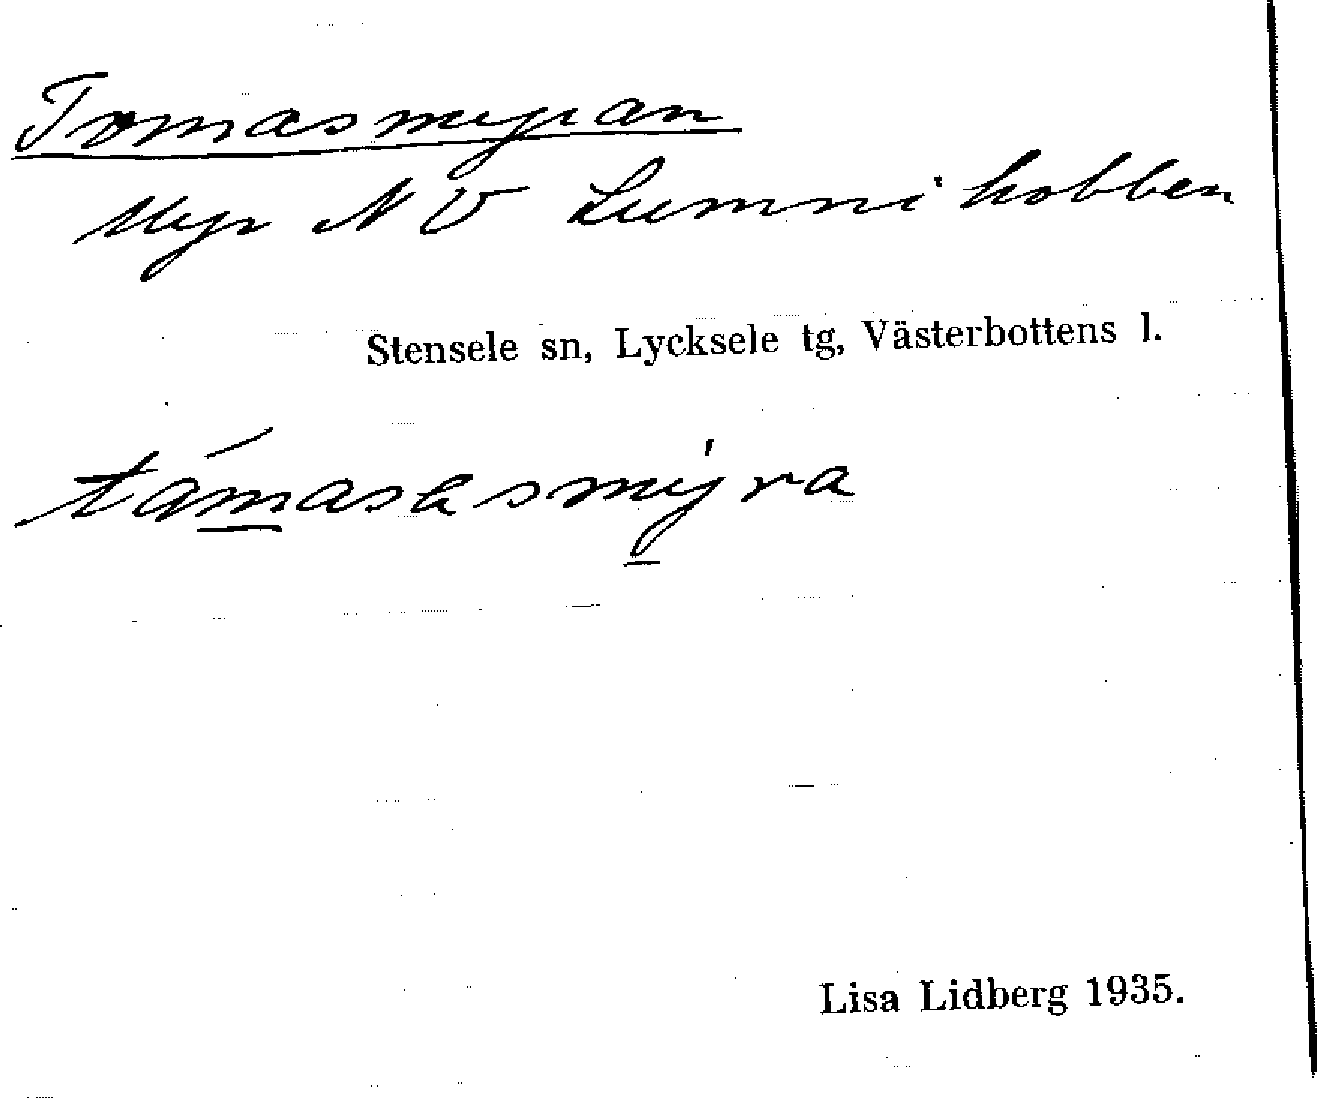 Tomasmyran
Myr NV Lumnikobben
Stensele sn, Lycksele tg, Västerbottens l.
támasasmýra
Lisa Lidberg 1935.